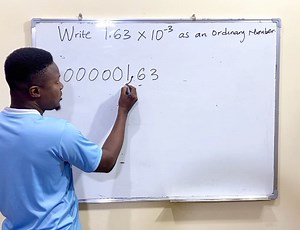 Write 1.63 × 10⁻³ as an ordinary Number
000001.63